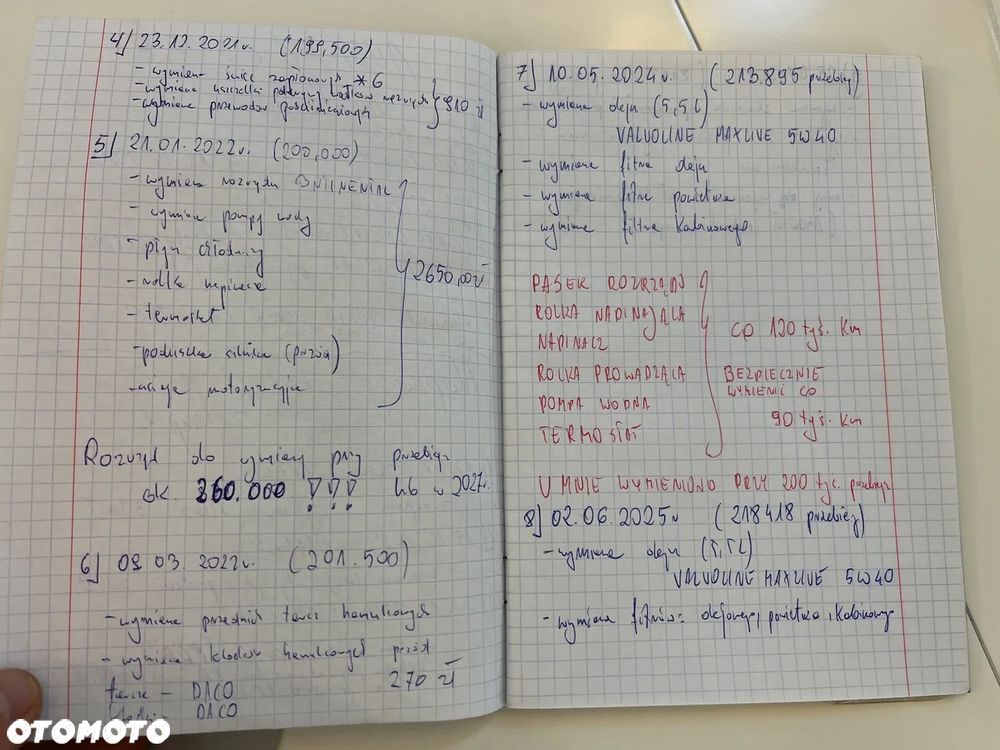 4) 23.12.2021r. (199,500)
- wymiana świec zapłonowych *6
- wymiana uszczelki pokrywy wałków rozrządu
- wymiana przewodów
910 zł
5) 21.01.2022r. (200,000)
- wymiana rozrządu
- wymiana pompy wody
- płyn chłodniczy
- rolka napinacza
- termostat
- poduszka silnika (przód)
- motoryzacyjne
2650,00zł
Rozrząd do wymiany przy przebiegu
ok. 260.000 !!! lub w 2027r.
6) 09 03. 2022r. (201.500)
- wymiana przednich tarcz hamulcowych
- wymiana klocków hamulcowych przód
270 zł
tarcze - DACO
DACO
7) 10.05.2024r. (213.895 przebieg)
- wymiana oleju (5,5 L)
VALVOLINE MAXLIVE 5W40
- wymiana filtra oleju
- wymiana filtra powietrza
- wymiana filtra kabinowego
PASEK ROZRZĄDU
ROLKA NAPINAJĄCA
NAPINACZ
ROLKA PROWADZĄCA
POMPA WODNA
TERMOSTAT
CO 120 tyś. km
BEZPIECZNIE
WYMIENIĆ CO
90 tyś. km
U MNIE WYMIENIONO PRZY 200 tyś. przebiegu
8) 02.06.2025r (218418 przebieg)
- wymiana oleju (5,5L)
VALVOLINE MAXLIVE 5W40
- wymiana filtrów: olejowego, powietrza, kabinowego
OTOMOTO